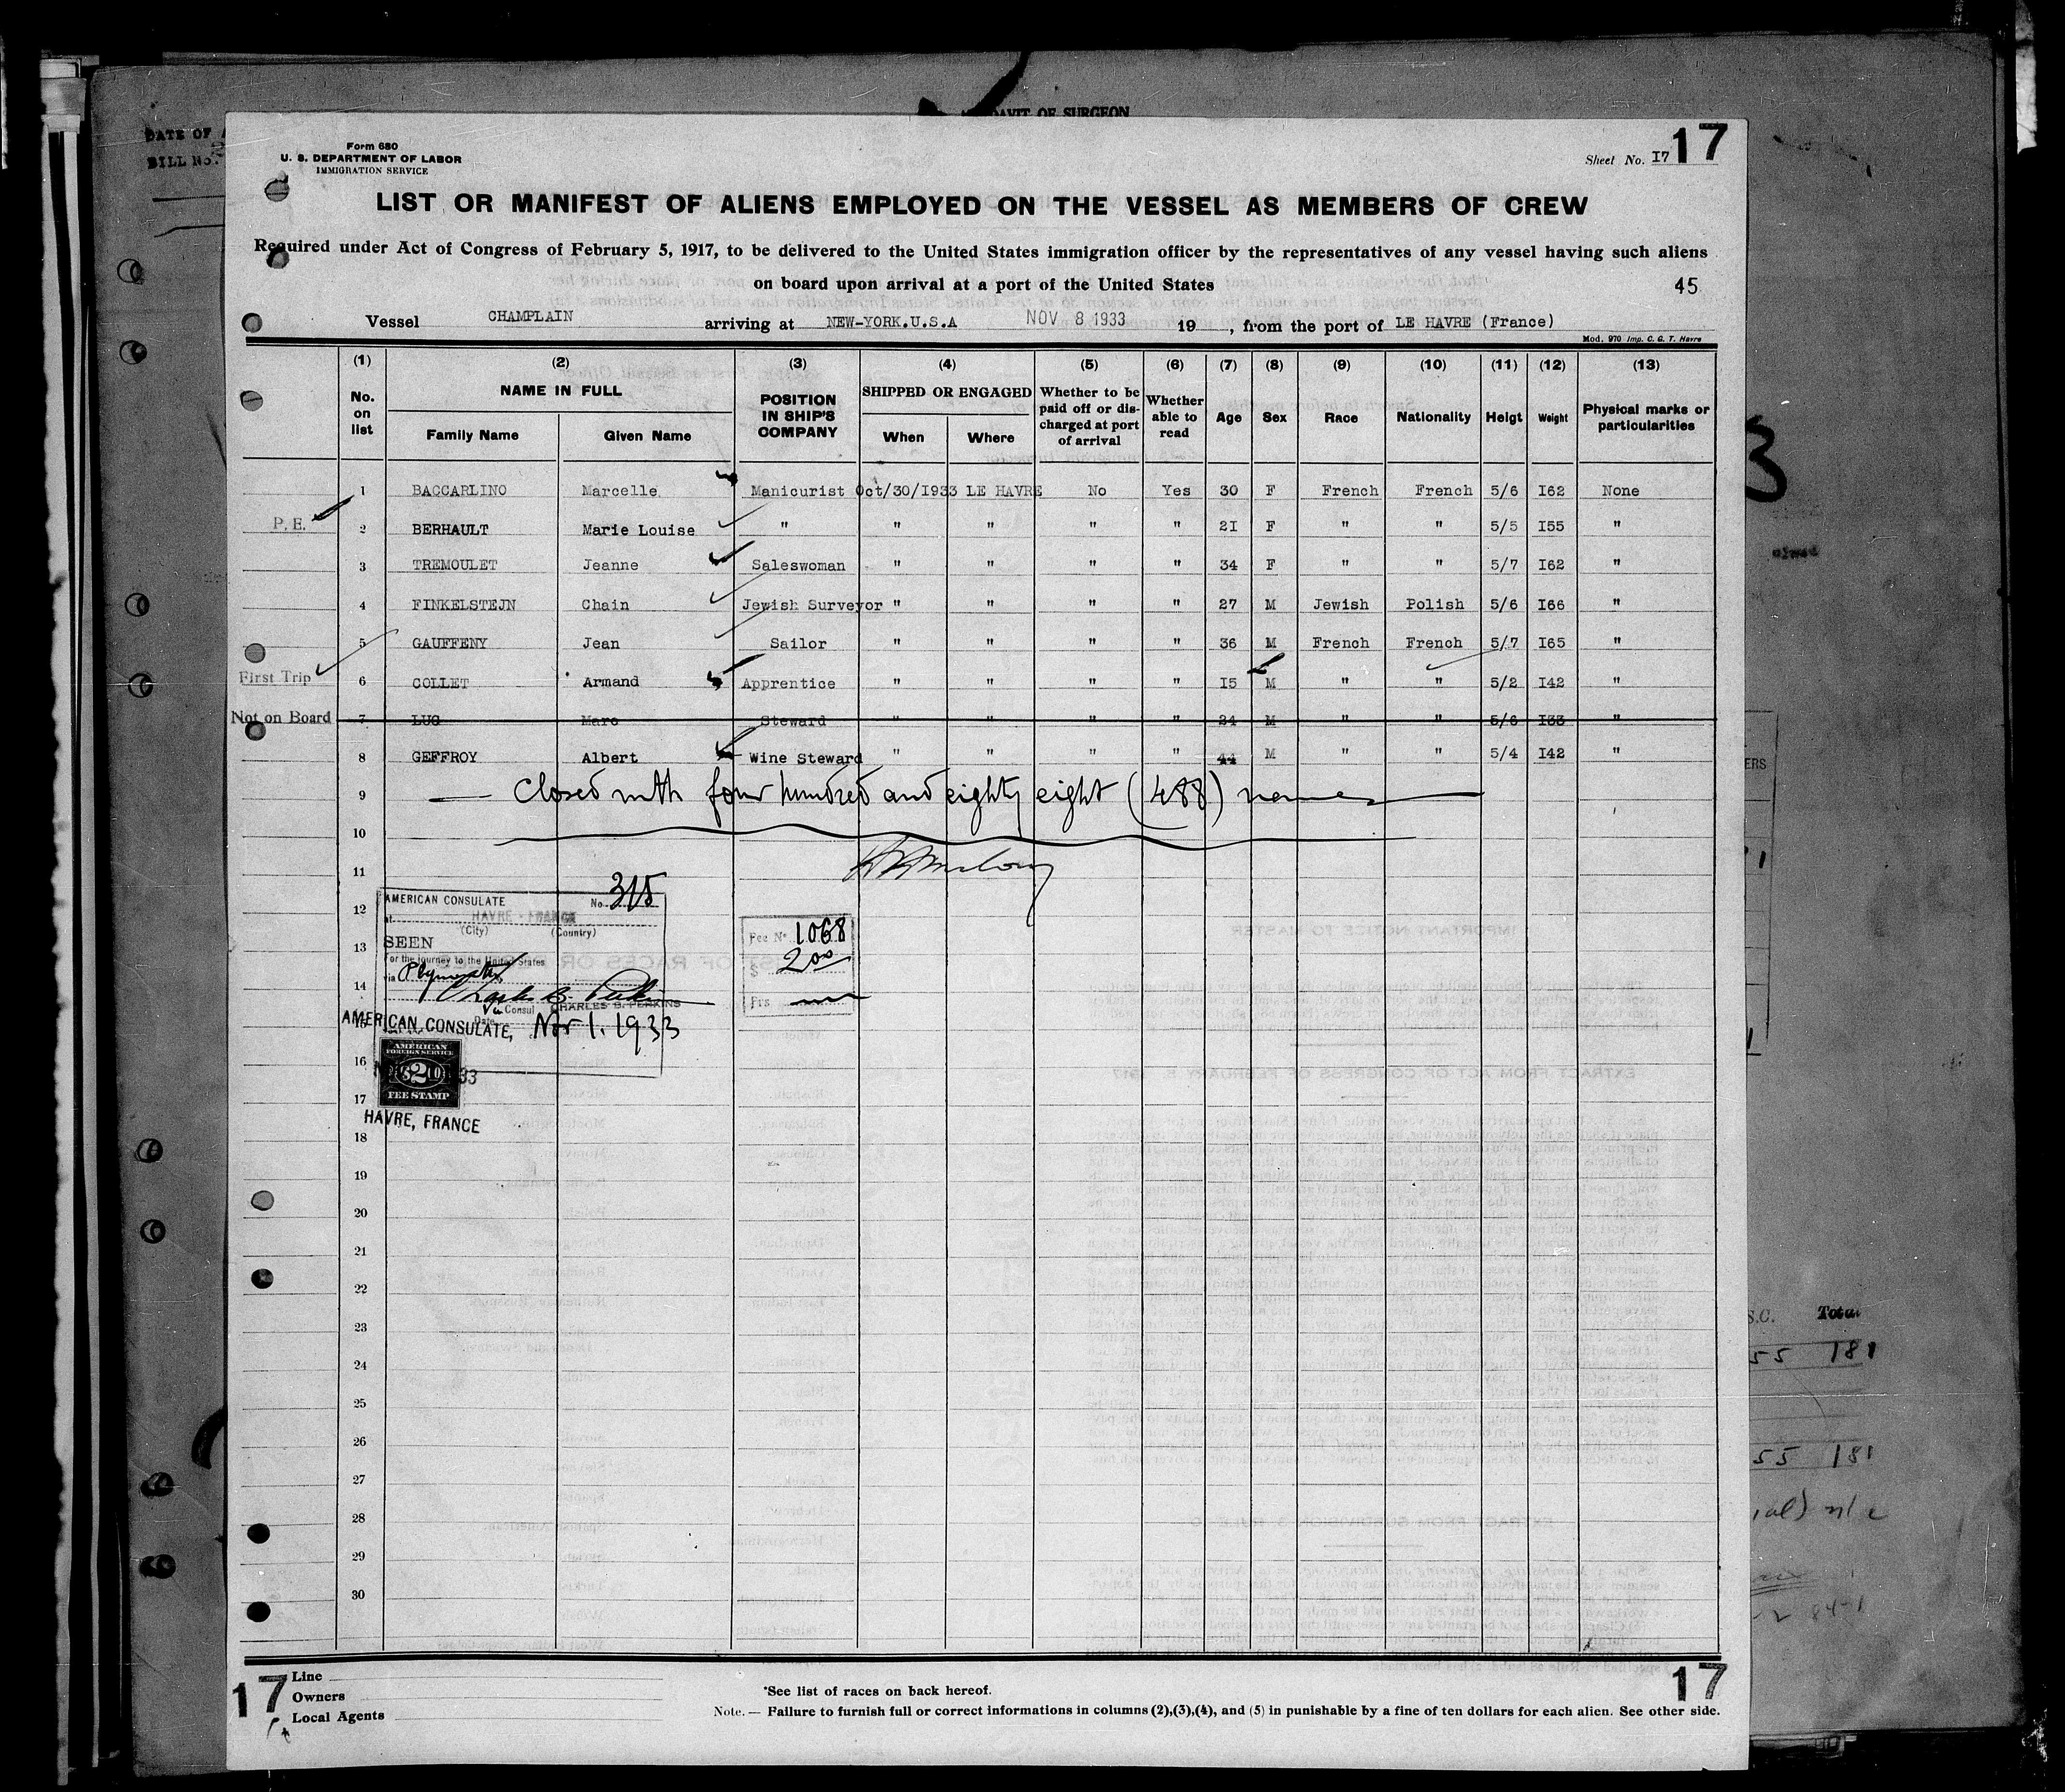 AFFIDAVIT OF SURGEON
DATE OF
BILL No.
Form 680
U. S. DEPARTMENT OF LABOR
IMMIGRATION SERVICE
Sheet No. I7 17
LIST OR MANIFEST OF ALIENS EMPLOYED ON THE VESSEL AS MEMBERS OF CREW
Required under Act of Congress of February 5, 1917, to be delivered to the United States immigration officer by the representatives of any vessel having such aliens
on board upon arrival at a port of the United States
45
Vessel CHAMPLAIN arriving at NEW-YORK.U.S.A NOV 8 1933 19 , from the port of LE HAVRE (France)
Mod. 970 Imp. C. G. T. Havre
(1) (2) (3) (4) (5) (6) (7) (8) (9) (10) (11) (12) (13)
No. on list NAME IN FULL Family Name Given Name POSITION IN SHIP'S COMPANY SHIPPED OR ENGAGED When Where Whether to be paid off or dis-charged at port of arrival Whether able to read Age Sex Race Nationality Heigt Weight Physical marks or particularities
1 BACCARLINO Marcelle Manicurist Oct/30/1933 LE HAVRE No Yes 30 F French French 5/6 I62 None
P.E. 2 BERHAULT Marie Louise " " " " " 2I F " " 5/5 I55 "
3 TREMOULET Jeanne Saleswoman " " " " 34 F " " 5/7 I62 "
4 FINKELSTEJN Chain Jewish Surveyor " " " " 27 M Jewish Polish 5/6 I66 "
5 GAUFFENY Jean Sailor " " " " 36 M French French 5/7 I65 "
First Trip 6 COLLET Armand Apprentice " " " " I5 M " " 5/2 I42 "
Not on Board 7 LUC Marc Steward " " " " 24 M " " 5/6 I33 "
8 GEFFROY Albert Wine Steward " " " " 44 M " " 5/4 I42 "
9 — Closed with four hundred and eighty eight (488) names —
10
11
12
13
14
15
16
17
18
19
20
21
22
23
24
25
26
27
28
29
30
AMERICAN CONSULATE No. 315
at HAVRE - FRANCE
(City) (Country)
SEEN
For the journey to the United States
via Plymouth
Charles B. Perkins
Vice Consul CHARLES B. PERKINS
Date Nov 1. 1933
AMERICAN CONSULATE,
AMERICAN
FOREIGN SERVICE
$2.00
FEE STAMP
HAVRE, FRANCE
Fee No 1068
$ 2.00
Frs
S.C. Total
55 181
55 181
17 Line
Owners
Local Agents
*See list of races on back hereof.
17
Note.— Failure to furnish full or correct informations in columns (2),(3),(4), and (5) in punishable by a fine of ten dollars for each alien. See other side.